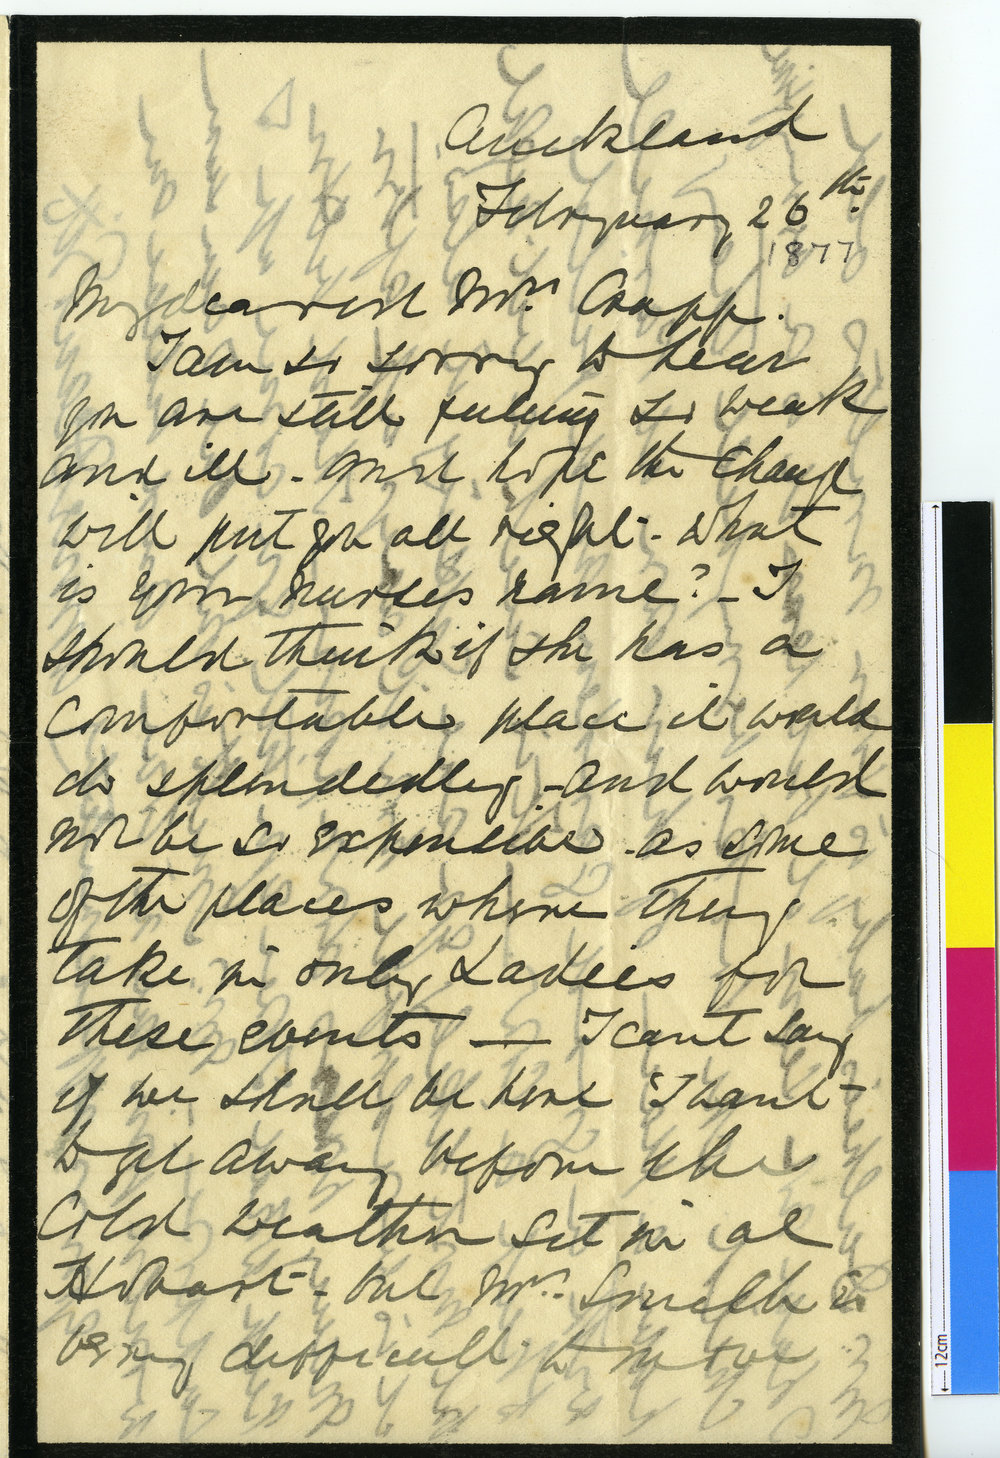 Auckland
February 26th
1877
My dearest Mrs Crapp.
I am so sorry to hear
you are still feeling so weak
and ill - and hope the change
will put you all right - What
is your nurses name? - I
should think if she has a
comfortable place it would
do splendedley - and would
not be so expensive - as some
of the places where they
take in only Ladies for
these events — I cant say
if we shall be here I want
to get away before the
cold weather set in at
Hobart - but Mrs Smith is
very difficult to move
12cm